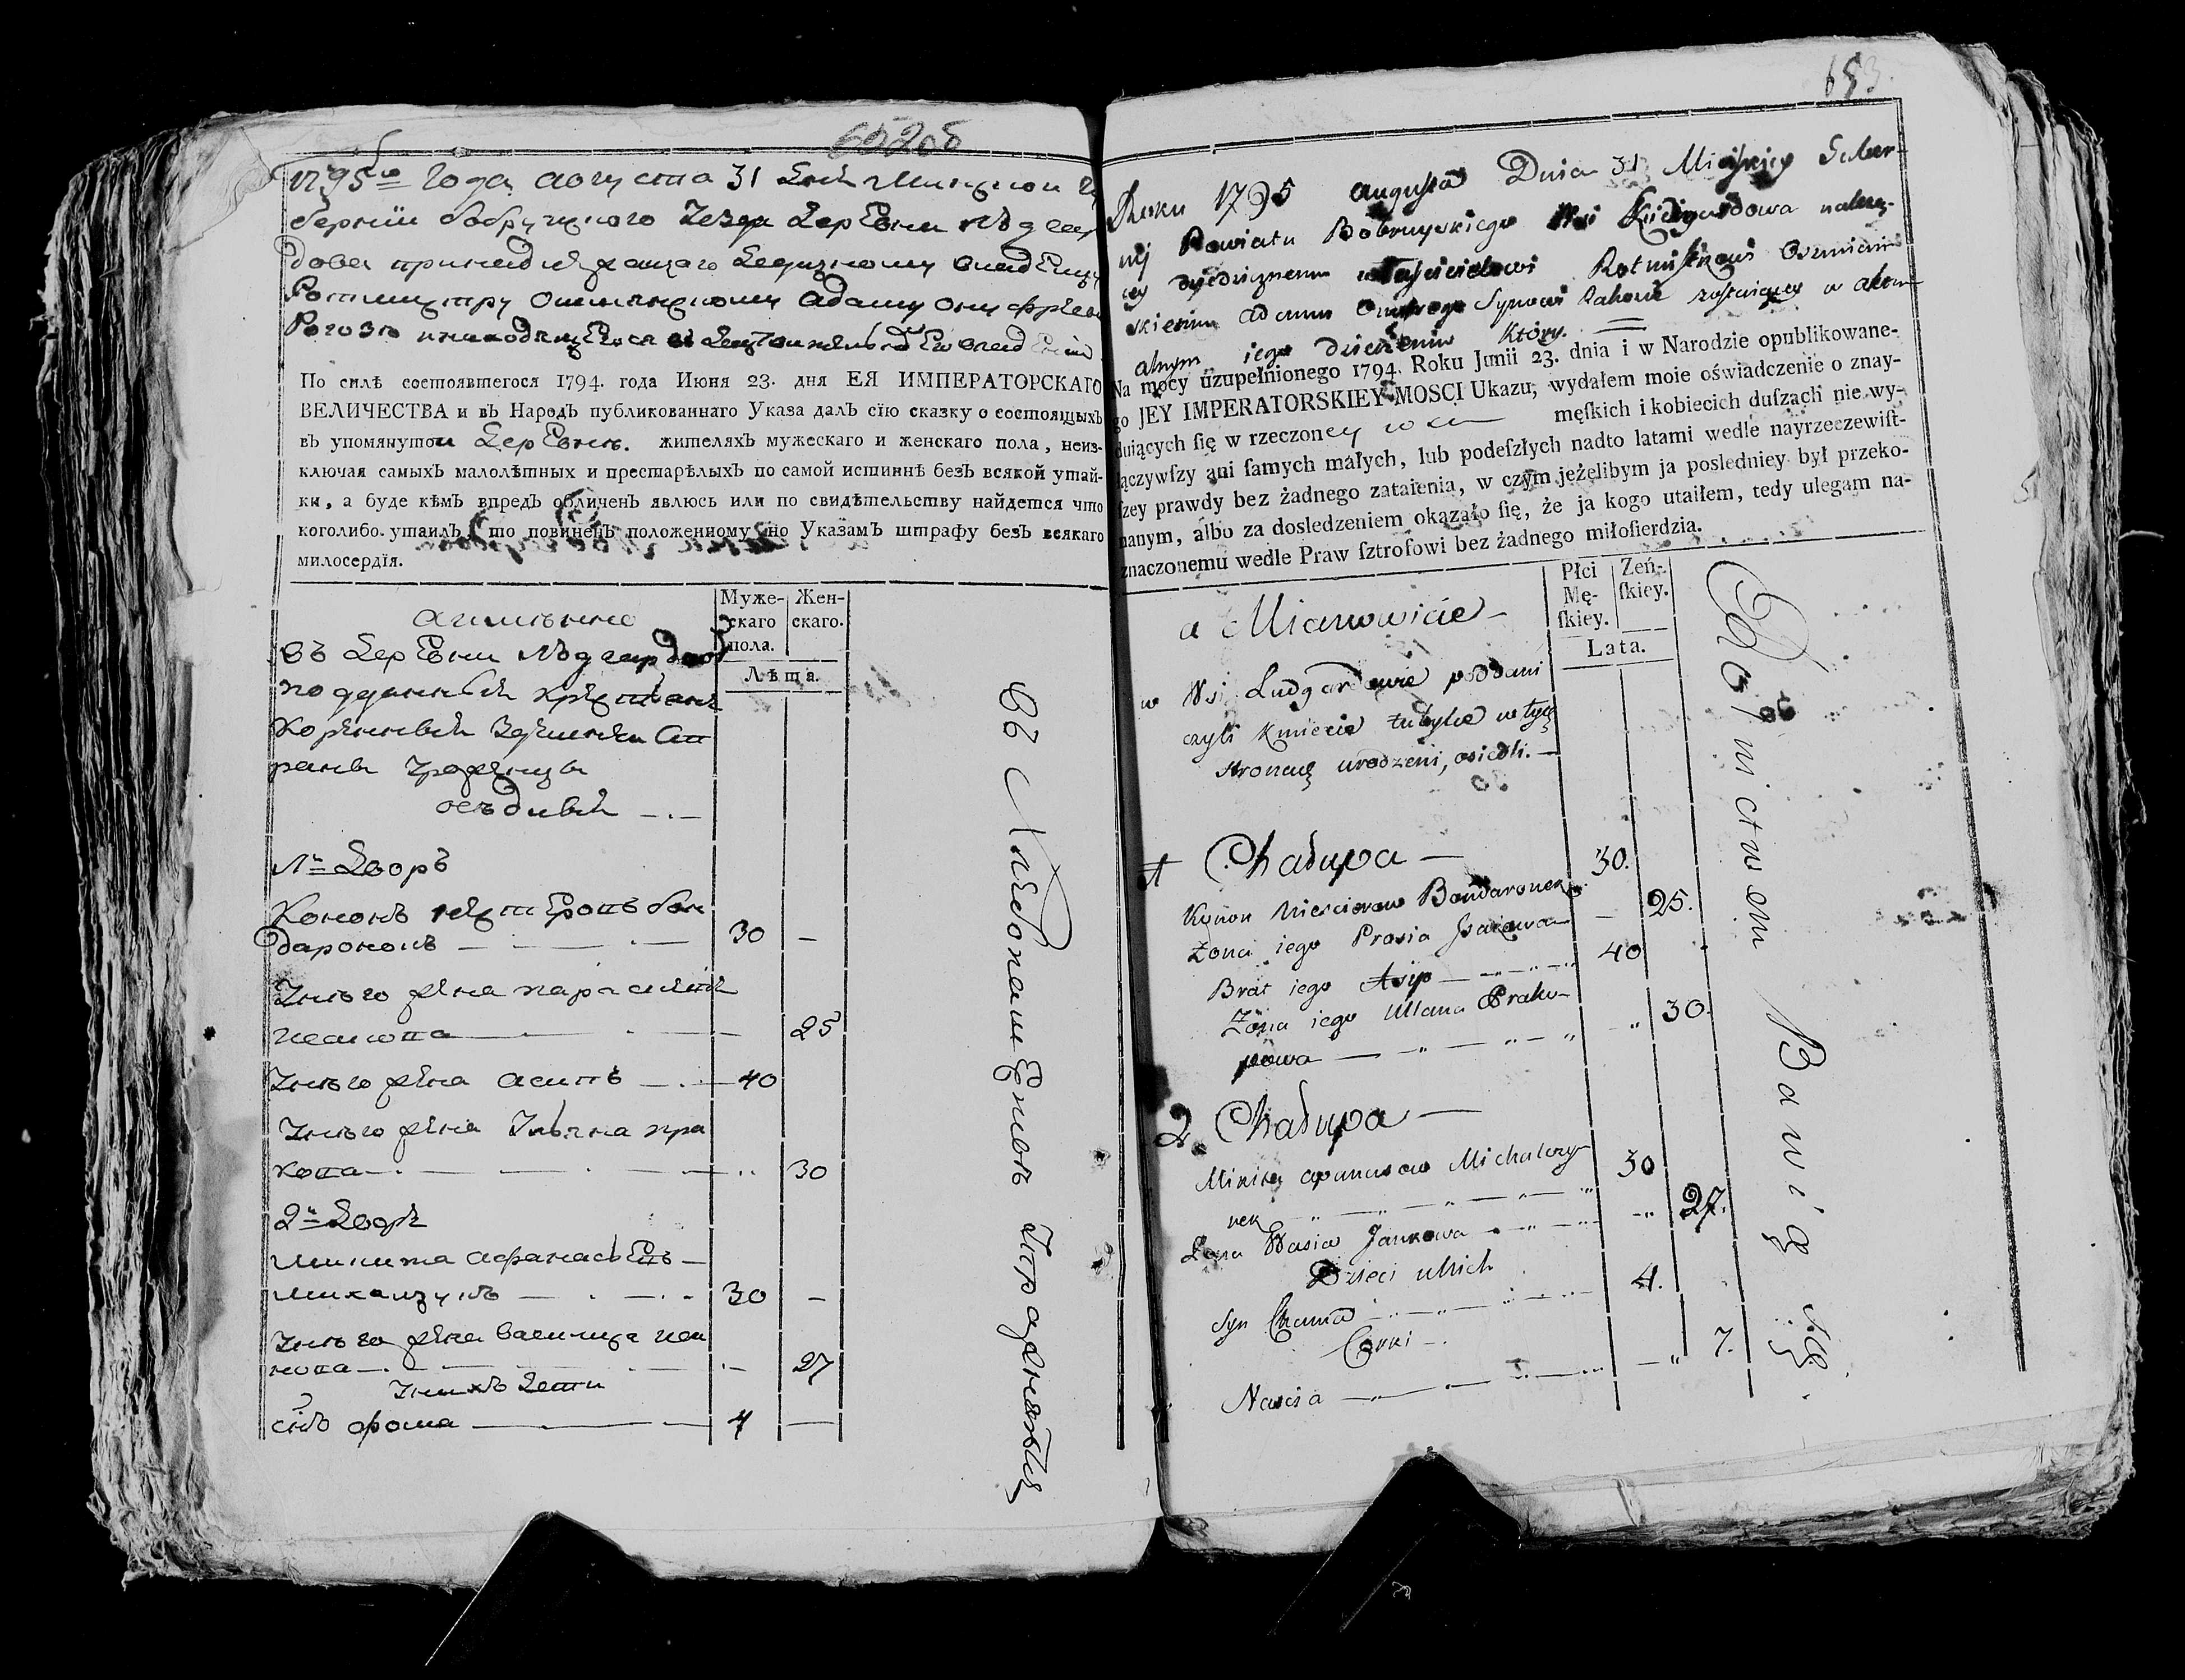 652об
1795го года августа 31 дня Минской гу
бернии бобруйского уезда деревни Людгар
дова принадлежащаго дедизному владельцу
Ротмистру Ошмянскому Адаму Онуфриеву
По силѣ состоявшегося 1794. года Июня 23. дня ЕЯ ИМПЕРАТОРСКАГО
ВЕЛИЧЕСТВА и въ Народъ публикованнаго Указа далъ сїю сказку о состоящыхъ
въ упомянутой деревне. жителяхъ мужескаго и женскаго пола, неиз-
ключая самыхъ малолѣтныхъ и престарѣлыхъ по самой истиннѣ безъ всякой утай-
ки, а буде кѣмъ впредъ обличенъ явлюсь или по свидѣтельству найдется что
коголибо утаилъ, то повиненъ положенному по Указамъ штрафу безъ всякаго
милосердїя.
а имянно
Муже-
скаго
пола.
Жен-
скаго.
Лѣта.
въ деревни Людгардово
подданные крестьяне
оседлые
1й двор
Конон Нестеров бон
даронок 30 —
у него жена Парасковья
исаиова 25
у него жена Асип 40
у него жена Ульяна пра
копова 30
2й двор
Микита Афанасьев
михалчунок 30 —
у него жена Василиса иа
нова 27
у них дети
сын фома 4 —
въ Хлебопашестве упражняются
653.
Roku 1795 augusta Dnia 31 Mińskiey Guber-
nij Powiatu Bobruyskiego Wsi Ludgardowa należą-
cey dziedzicznemu właścicielowi Rotmistrzowi Oszmiań-
skiemu Adamu Onufrego Synowi
alnym iego dzierżeniu który.
Na mocy uzupełnionego 1794. Roku Junii 23. dnia i w Narodzie opublikowane-
go JEY IMPERATORSKIEY MOSCI Ukazu, wydałem moie oświadczenie o znay-
duiących ſię w rzeczoney wsi męſkich i kobiecich duſzach nie wy-
łączywſzy ani ſamych małych, lub podeſzłych nadto latami wedle nayrzeczewiſt-
ſzey prawdy bez żadnego zataienia, w czym jeżelibym ja posledniey był przeko-
nanym, albo za dosledzeniem okązało ſię, że ja kogo utaiłem, tedy ulegam na-
znaczonemu wedle Praw ſztrofowi bez żadnego miłoſierdzia.
a Mianowicie
Płci
Mę-
ſkiey.
Żeń-
ſkiey.
Lata.
w Wsi Ludgardowie poddani
czyli Kmiecie tubylce w tych
stronach urodzeni, osiedli. —
1 Chałupa —
Konon Niescierow Bandaronek 30.
Żona iego Prosia Isaiowa — 25.
Brat iego Asip 40
Żona iego Ullana Prako-
powa 30.
2 Chałupa —
Mikita apanasow Michalczy-
nek 30
Żona Wasia Jankowa 27.
Dzieci u Nich
Syn Chama 4.
Corki —
Nascia 7.
Rolnictwem Bawią się.